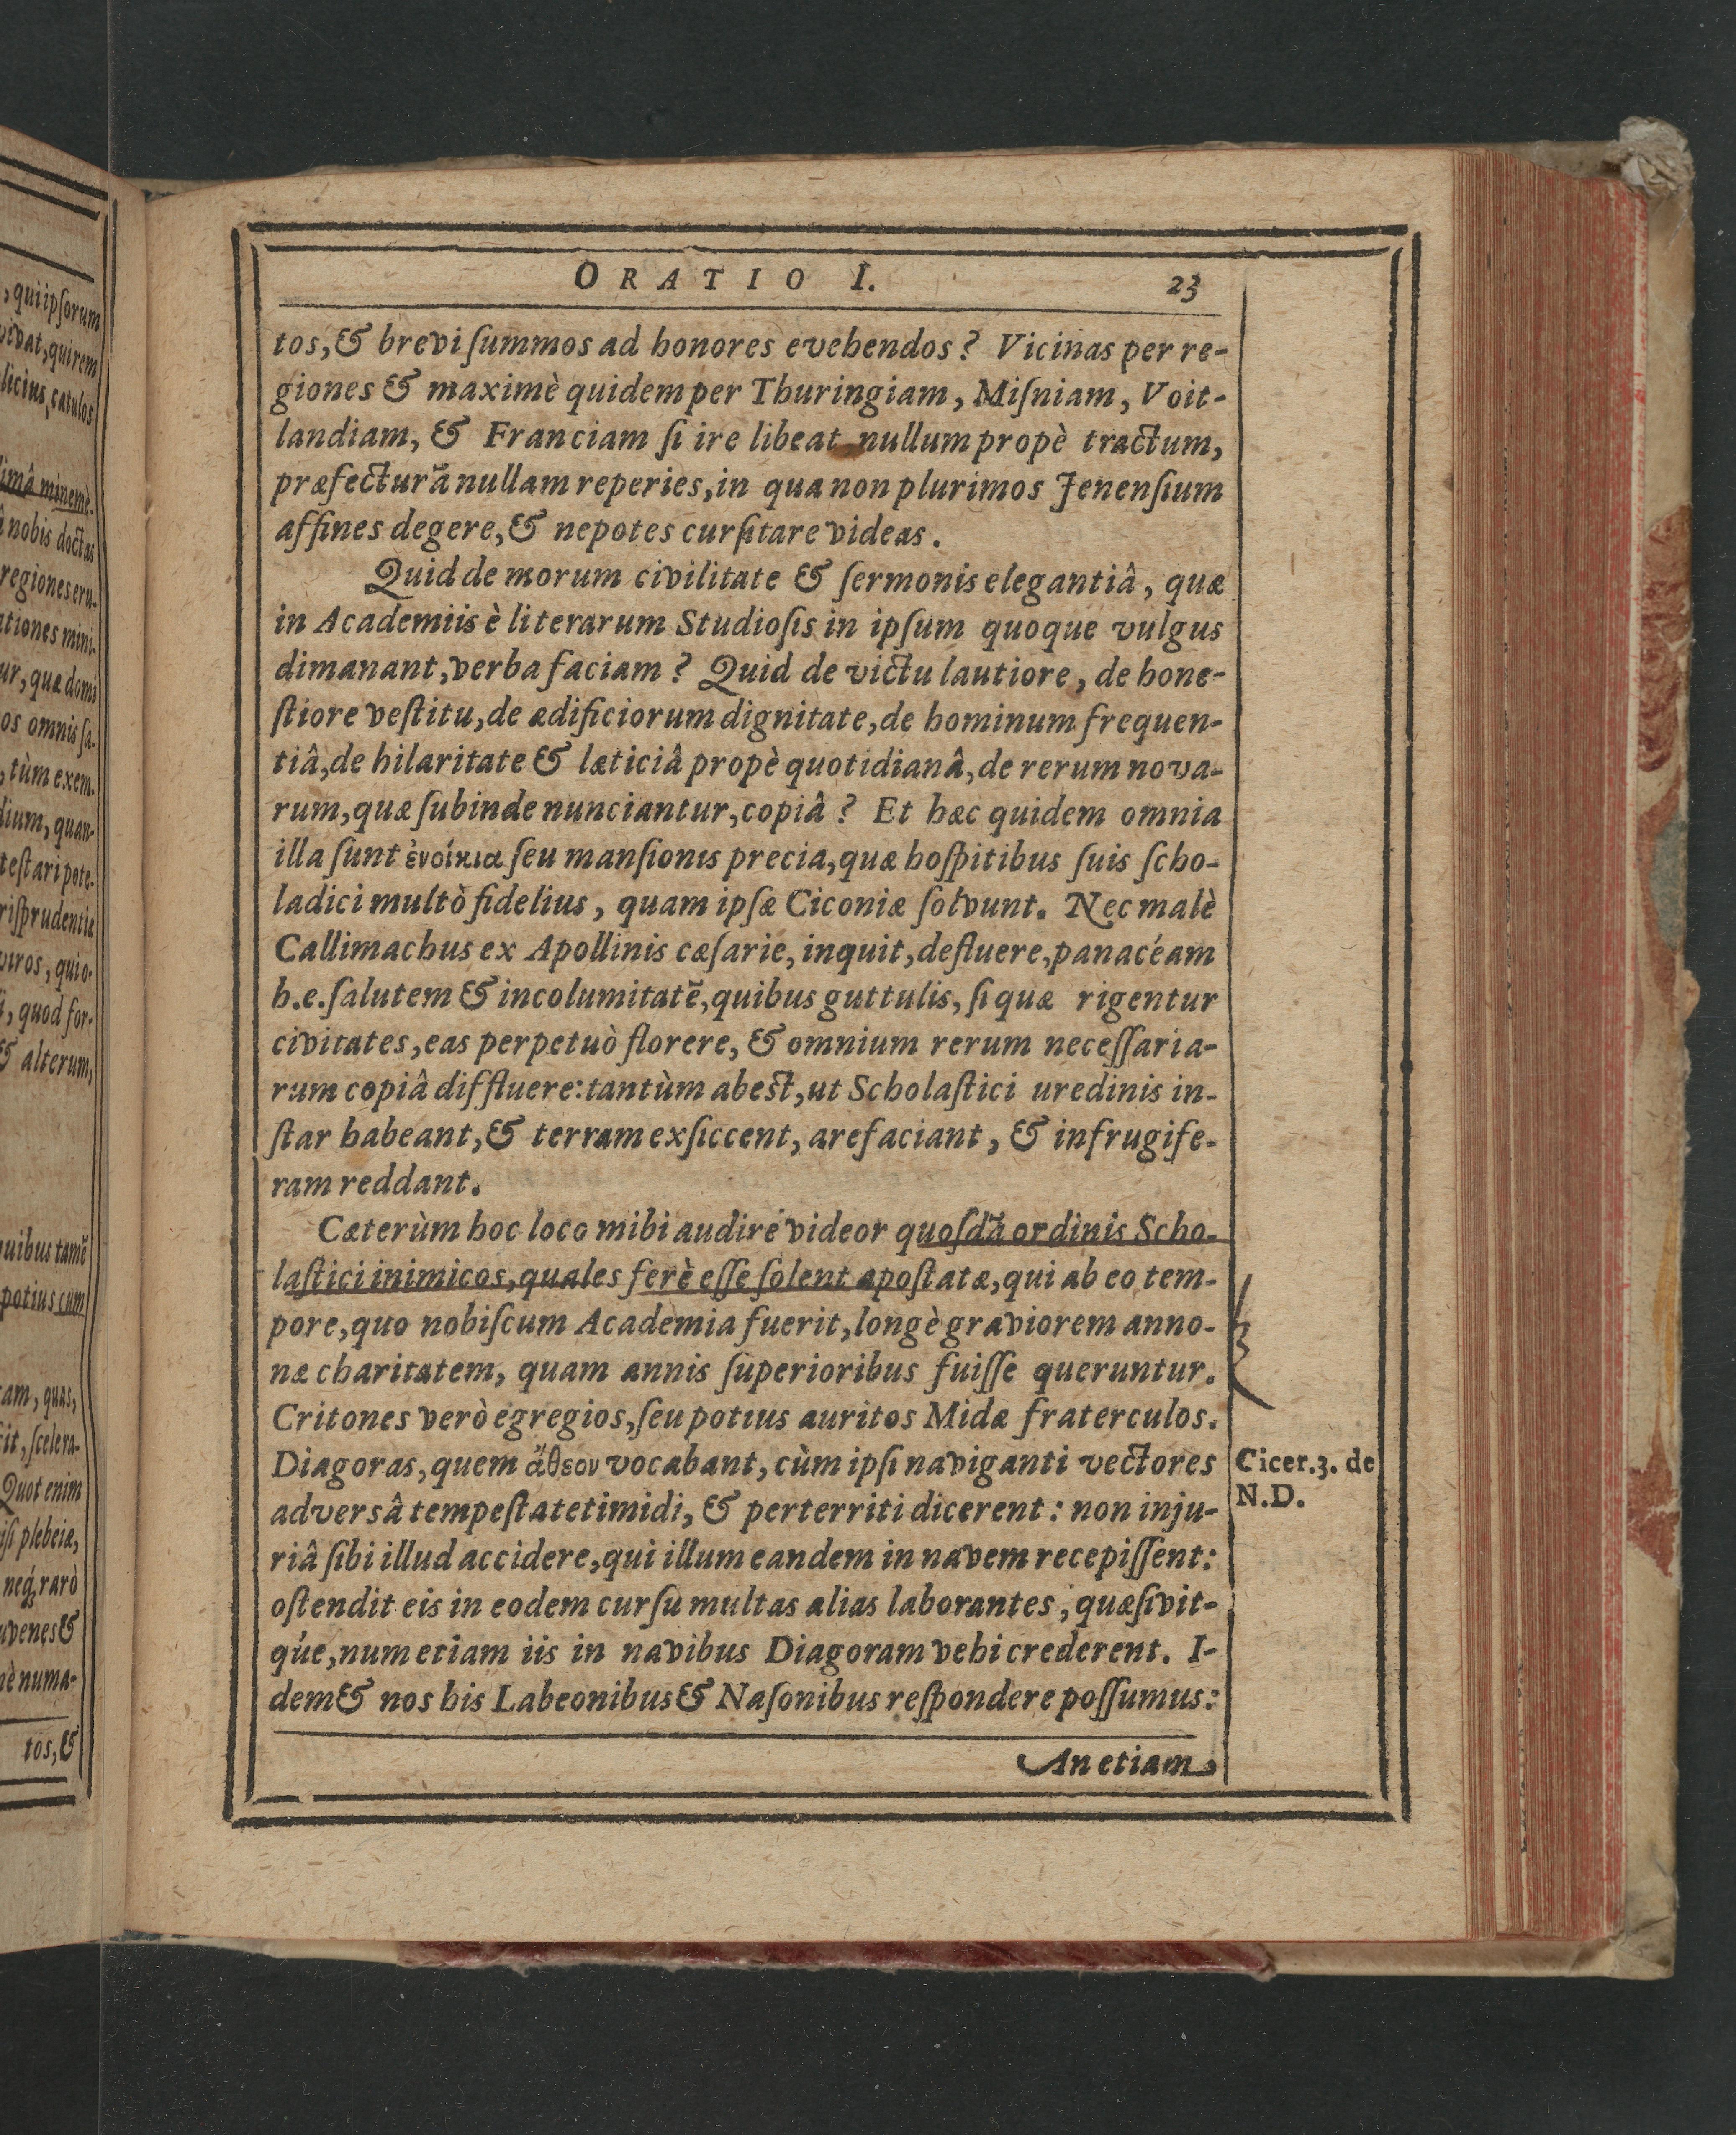 , qui ipſorum
vivat, qui rem
licius, catulos
limâ minemè.
nobis doctas
regiones eru-
ationes mini-
ur, quæ domi
os omnis ſa-
, tùm exem-
dium, quan-
teſtari pote-
riſprudentiæ
viros, qui o-
i, quod for-
& alterum,
quibus tamẽ
potius cum
cam, quas,
cit, ſcelera-
Quot enim
iſi plebeiæ,
neq́; rarò
uvenes &
nè numa-
tos, &
ORATIO I. 23
tos, & brevi ſummos ad honores evehendos? Vicinas per re-
giones & maximè quidem per Thuringiam, Miſniam, Voit-
landiam, & Franciam ſi ire libeat nullum propè tractum,
præfecturã nullam reperies, in qua non plurimos Jenenſium
affines degere, & nepotes curſitare videas.
Quid de morum civilitate & ſermonis elegantiâ, quæ
in Academiis è literarum Studioſis in ipſum quoque vulgus
dimanant, verba faciam? Quid de victu lautiore, de hone-
ſtiore veſtitu, de ædificiorum dignitate, de hominum frequen-
tiâ, de hilaritate & læticiâ propè quotidianâ, de rerum nova-
rum, quæ ſubinde nunciantur, copiâ? Et hæc quidem omnia
illa ſunt ἐνοίκια ſeu manſionis precia, quæ hoſpitibus ſuis ſcho-
ladici multò fidelius, quam ipſæ Ciconiæ ſolvunt. Nec malè
Callimachus ex Apollinis cæſarie, inquit, defluere, panacéam
h.e. ſalutem & incolumitatẽ, quibus guttulis, ſi quæ rigentur
civitates, eas perpetuò florere, & omnium rerum neceſſaria-
rum copiâ diffluere: tantùm abest, ut Scholaſtici uredinis in-
ſtar habeant, & terram exſiccent, arefaciant, & infrugife-
ram reddant.
Cæterùm hoc loco mihi audire videor quoſdã ordinis Scho-
laſtici inimicos, quales ferè eſſe ſolent apoſtatæ, qui ab eo tem-
pore, quo nobiſcum Academia fuerit, longè graviorem anno-
næ charitatem, quam annis ſuperioribus fuiſſe queruntur.
Critones verò egregios, ſeu potius auritos Midæ fraterculos.
Diagoras, quem ἄθεον vocabant, cùm ipſi naviganti vectores
adversâ tempeſtate timidi, & perterriti dicerent: non inju-
riâ ſibi illud accidere, qui illum eandem in navem recepiſſent:
oſtendit eis in eodem curſu multas alias laborantes, quæſivit-
que, num etiam iis in navibus Diagoram vehi crederent. I-
dem & nos his Labeonibus & Naſonibus reſpondere poſſumus:
An etiam
Cicer. 3. de
N.D.